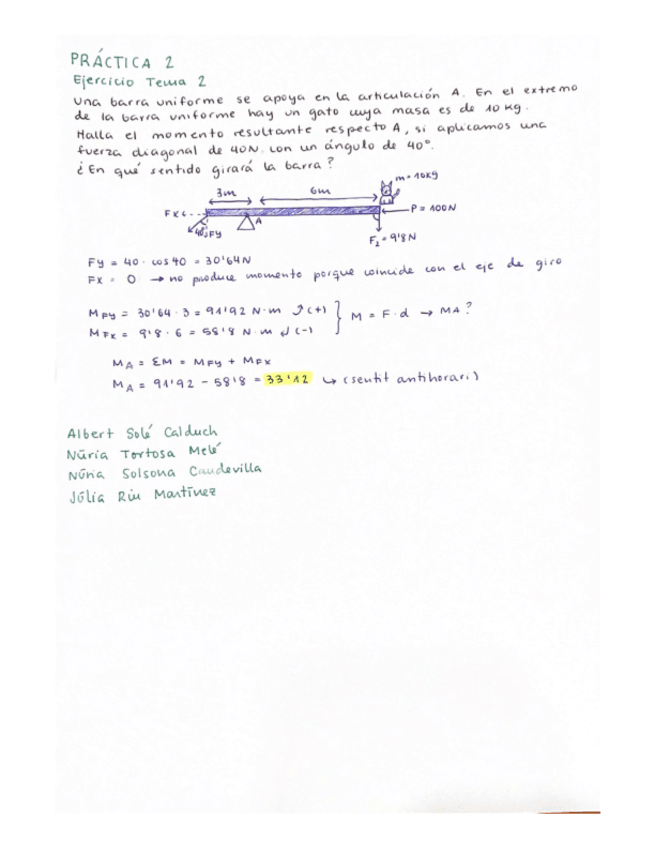 PRÁCTICA 2
Ejercicio Tema 2
Una barra uniforme se apoya en la articulación A. En el extremo
de la barra uniforme hay un gato cuya masa es de 10 Kg.
Halla el momento resultante respecto A, si aplicamos una
fuerza diagonal de 40N. con un ángulo de 40°.
¿En qué sentido girará la barra?
3m 6m m = 10Kg
Fx A P = 100N
40° Fy F₂ = 9'8N
Fy = 40 · cos 40 = 30'64N
Fx = 0 → no produce momento porque coincide con el eje de giro
MFy = 30'64 · 3 = 91'92 N·m (+)
MFx = 9'8 · 6 = 58'8 N·m (-) } M = F·d → MA?
MA = ΣM = MFy + MFx
MA = 91'92 - 58'8 = 33'12 ↪ (sentit antihorari)
Albert Solé Calduch
Núria Tortosa Melé
Núria Solsona Caudevilla
Júlia Riu Martínez